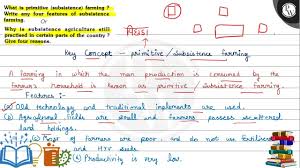 What is primitive (subsistence) farming ?
Write any four features of subsistence
farming.
Or
Why is subsistence agriculture still
practised in certain parts of the country ?
Give four reasons.
Key Concept - primitive / Subsistence farming
A farming in which the main production is consumed by the
farmer's household is known as primitive / subsistence farming.
Features :-
(a) Old technology and traditional implements are used.
(b) Agricultural fields are small and farmers possess scattered
land holdings.
(c) Most of farmers are poor and do not use fertilizers
and HYV seeds.
(d) Productivity is very low.